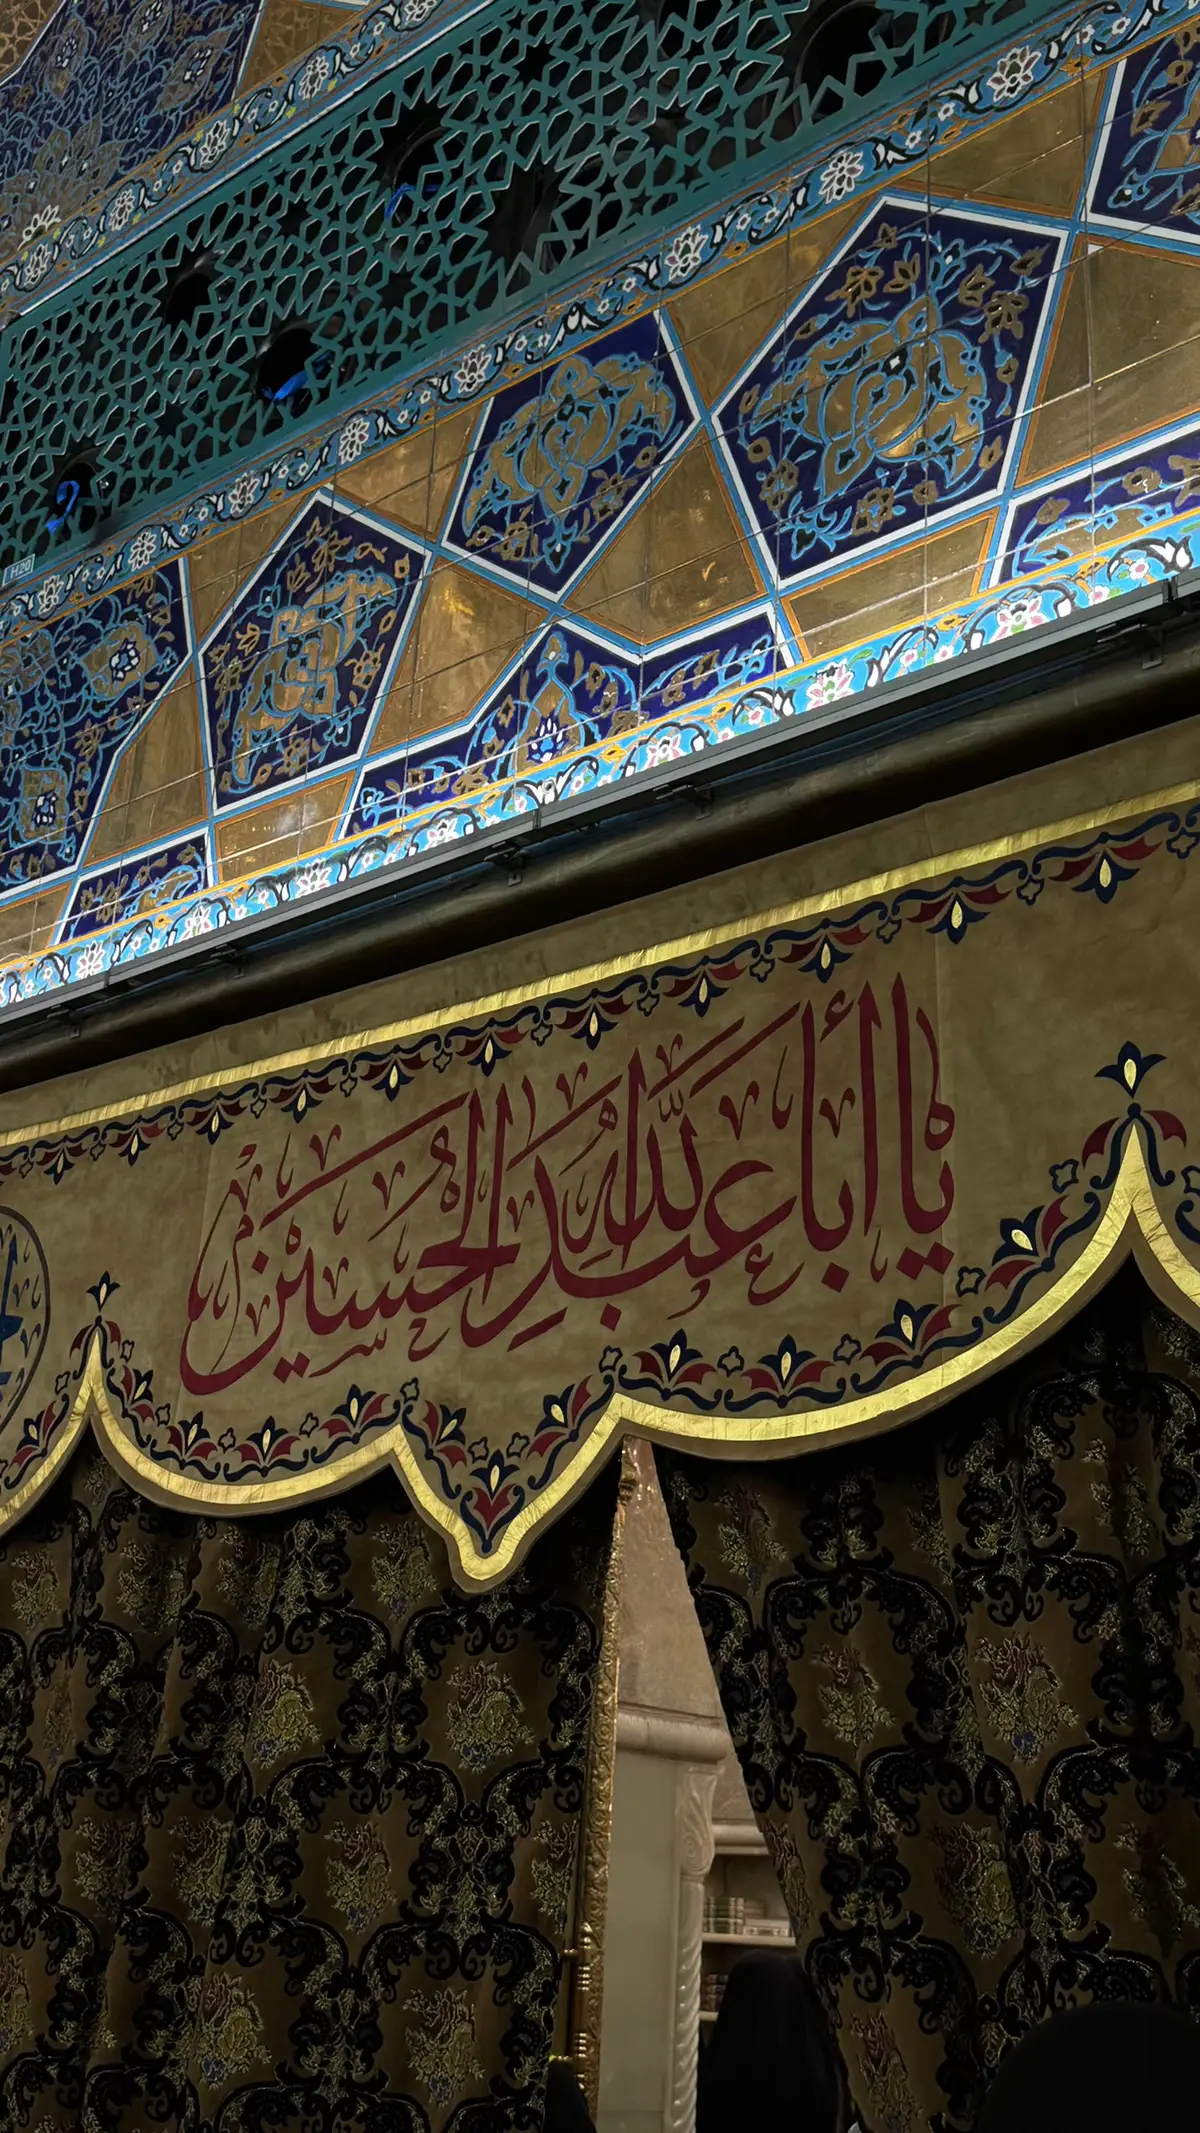 H20
يا أبا عبدِ اللهِ الحُسين